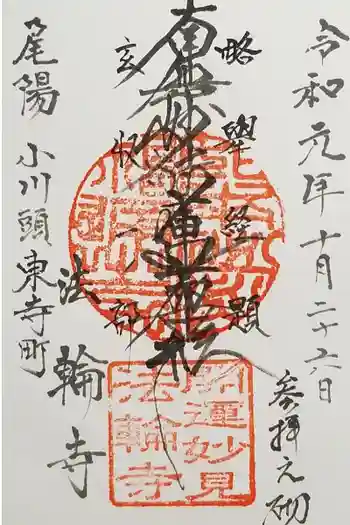 令和元年十月二十六日
参拝之砌
略挙経題
南無妙法蓮華経
玄収一部
法輪寺
尾陽 小川頭東寺町
開運妙見
法輪寺